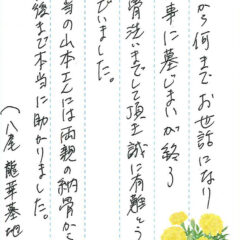 から何までお世話になり
事に墓じまいが終り
骨洗いまでして頂き誠に有難とう
ざいました。
当の山本さんには両親の納骨から
後まで本当に助かりました。
（八尾 龍華墓地